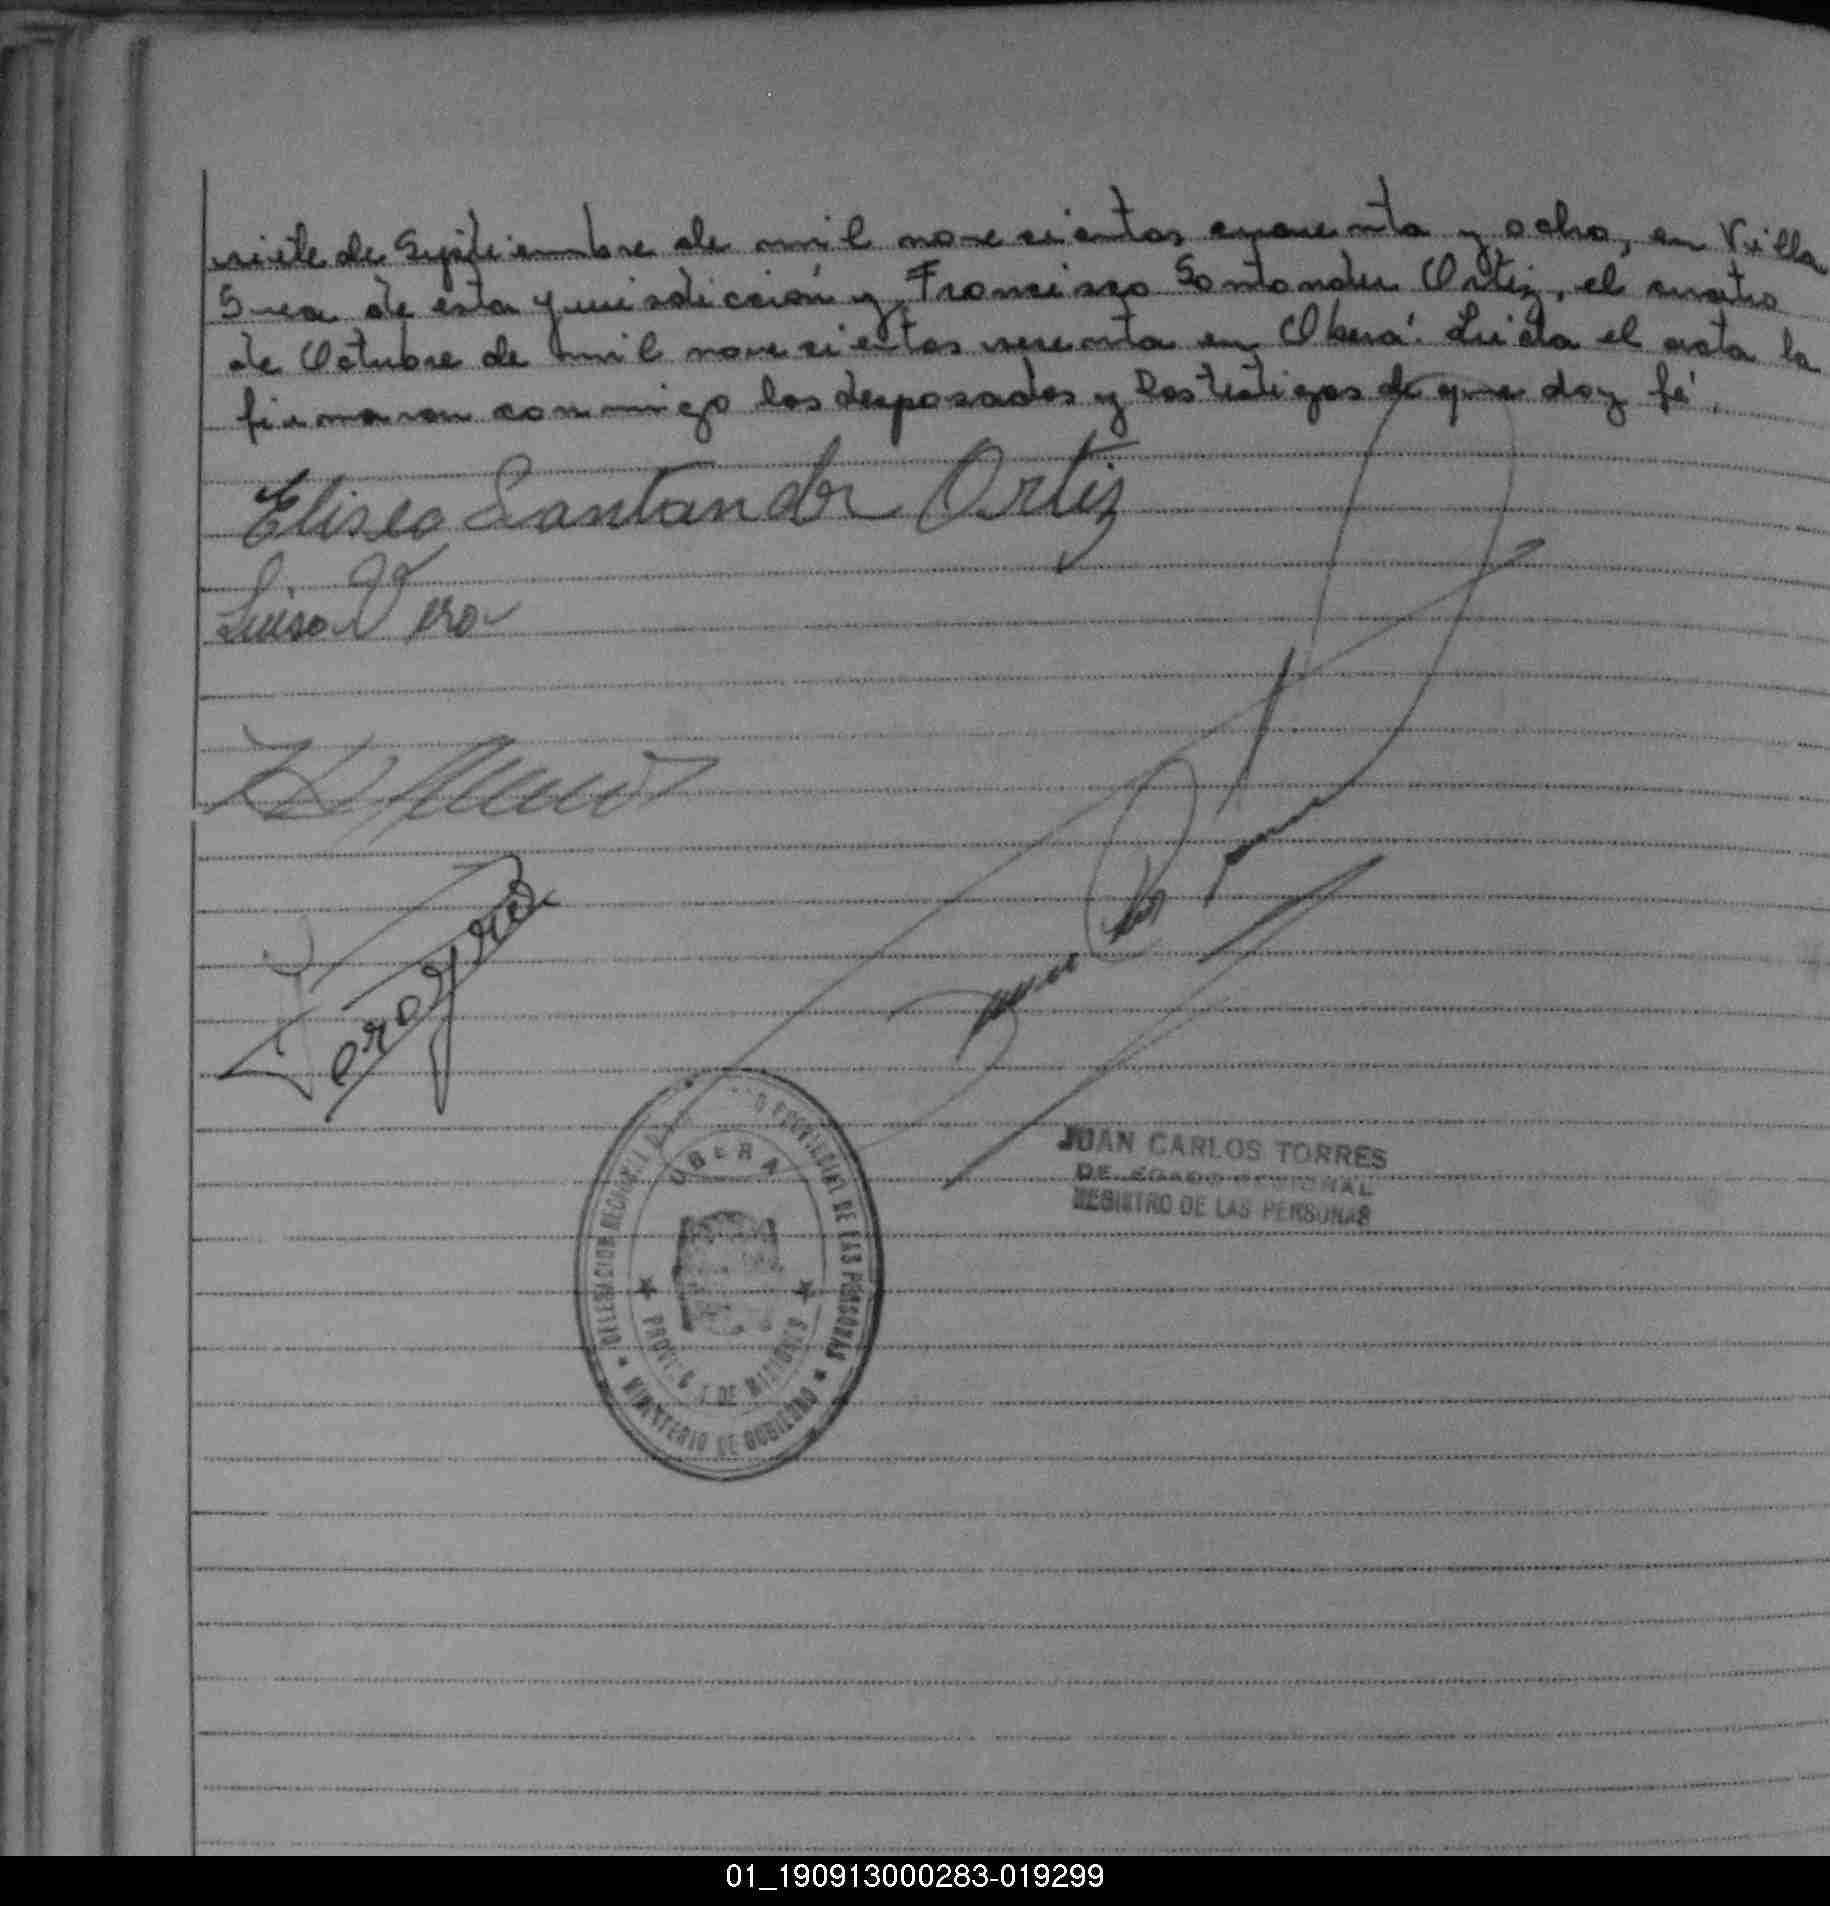 siete de Septiembre de mil novecientos cuarenta y ocho, en Villa
Svea de esta jurisdicción y Francisco Santander Ortiz, el cuatro
de Octubre de mil novecientos sesenta en Oberá. Leída el acta la
firmaron conmigo los desposados y los testigos de que doy fé.
Eliseo Santander Ortiz
Luisa Vera
OBERA
DELEGACION REGIONAL
PROVINCIAL DE LAS PERSONAS
DE MISIONES
MINISTERIO DE GOBIERNO
JUAN CARLOS TORRES
DELEGADO REGIONAL
REGISTRO DE LAS PERSONAS
01_190913000283-019299